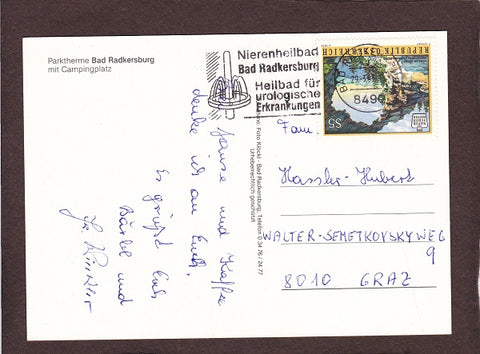 Parktherme Bad Radkersburg
mit Campingplatz
Nierenheilbad
Bad Radkersburg
Heilbad für
urologische
Erkrankungen
REPUBLIK ÖSTERREICH
S5
BAD
8490
Foto Köckl · Bad Radkersburg, Telefon 0 34 76 / 24 77
Urheberrechtlich geschützt
Jause und Kaffee
denke ich an Euch.
Es grüßt Euch
Bärbel und
Fam.
Hassler-Hubert
WALTER-SEMETKOVSKYWEG
9
8010 GRAZ